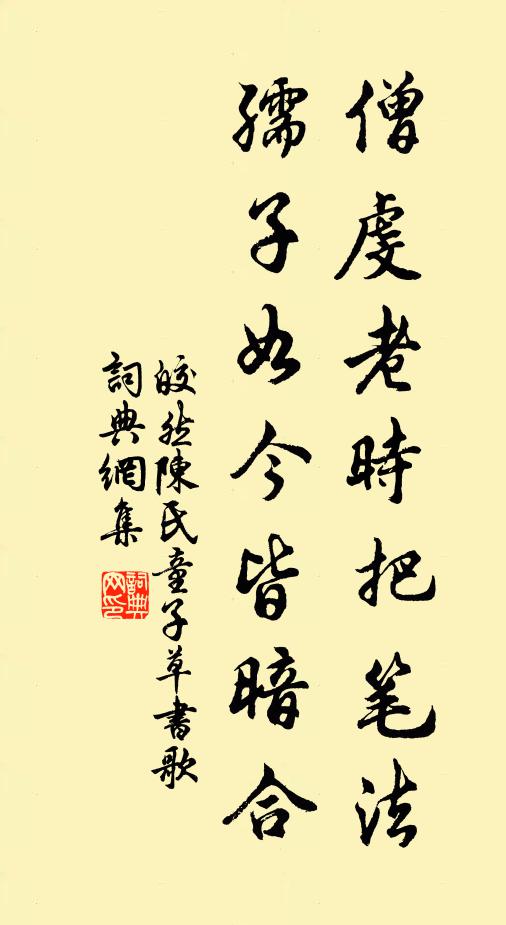 僧虔老時把笔法
孺子如今皆暗合
皎然陳氏童子草書歌
詞典網集
詞典网印